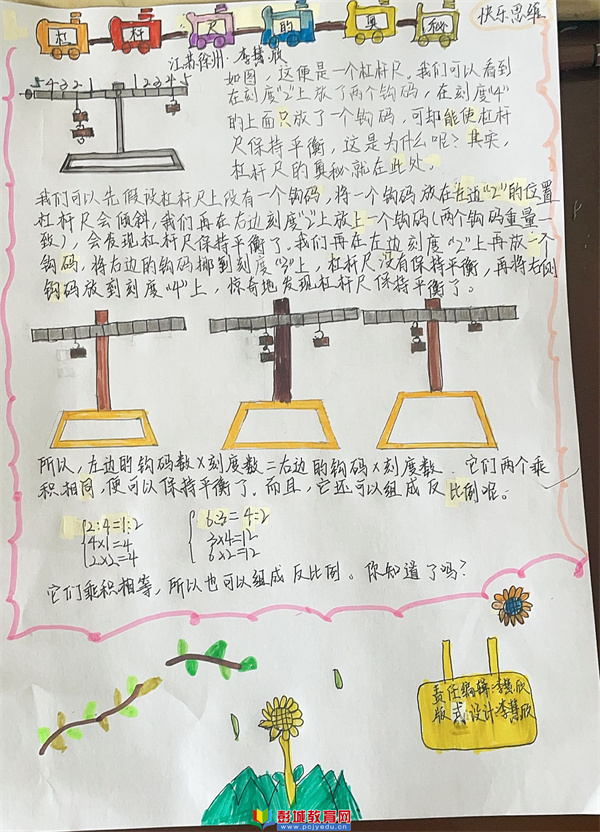 杠杆尺的奥秘
快乐思维
江苏徐州·李慧欣
5 4 3 2 1 1 2 3 4 5
如图，这便是一个杠杆尺。我们可以看到
在刻度“2”上放了两个钩码，在刻度“4”
的上面只放了一个钩码，可却能使杠杆
尺保持平衡，这是为什么呢？其实，
杠杆尺的奥秘就在此处。
我们可以先假设杠杆尺上没有一个钩码，将一个钩码放在左边“2”的位置
杠杆尺会倾斜，我们再在右边刻度“2”上放上一个钩码（两个钩码重量一
致），会发现杠杆尺保持平衡了。我们再在左边刻度“2”上再放一个
钩码，将右边的钩码挪到刻度“3”上，杠杆尺没有保持平衡，再将右侧
钩码放到刻度“4”上，惊奇地发现杠杆尺保持平衡了。
所以，左边的钩码数×刻度数=右边的钩码×刻度数．它们两个乘
积相同，便可以保持平衡了。而且，它还可以组成反比例呢。
2:4=1:2
4×1=4
2×2=4
6:3=4:2
3×4=12
6×2=12
它们乘积相等，所以也可以组成反比例。你知道了吗？
责任编辑：李慧欣
版式设计：李慧欣
彭城教育网
www.pcjyedu.cn